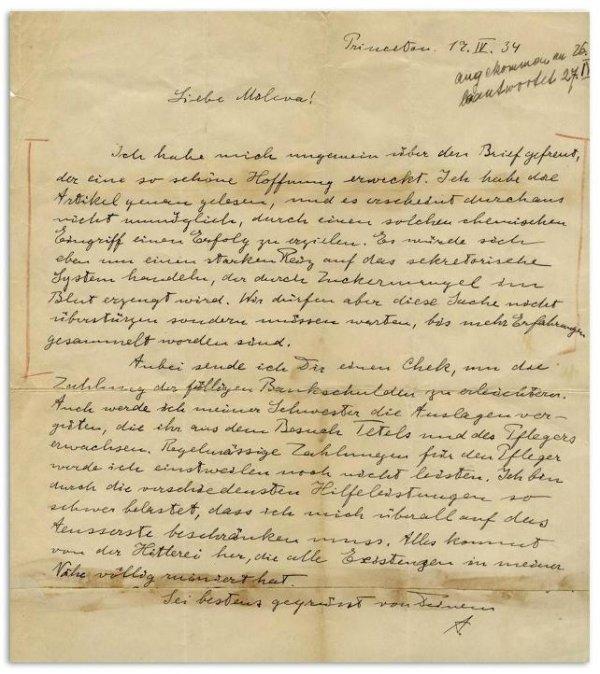 Princeton. 17. IV. 34
angekommen am 26.
beantwortet 27. IV
Liebe Mileva!
Ich habe mich ungemein über den Brief gefreut,
der eine so schöne Hoffnung erweckt. Ich habe die
Artikel genau gelesen, und es erscheint durchaus
nicht unmöglich, durch einen solchen chemischen
Eingriff einen Erfolg zu erzielen. Es würde sich
eben um einen starken Reiz auf das sekretorische
System handeln, der durch Zuckermangel im
Blut erzeugt wird. Wir dürfen aber diese Sache nicht
überstürzen sondern müssen warten, bis mehr Erfahrungen
gesammelt worden sind.
Anbei sende ich Dir einen Chek, um die
Zahlung der fälligen Bankschulden zu erleichtern.
Auch werde ich meiner Schwester die Auslagen ver-
güten, die ihr aus dem Besuch Tetels und des Pflegers
erwachsen. Regelmässige Zahlungen für den Pfleger
werde ich einstweilen noch nicht leisten. Ich bin
durch die verschiedensten Hilfeleistungen so
schwer belastet, dass ich mich überall auf das
Aeusserste beschränken muss. Alles kommt
von der Hitlerei her, die alle Existenzen in meiner
Nähe völlig ruiniert hat
Sei bestens gegrüsst von Deinem
A